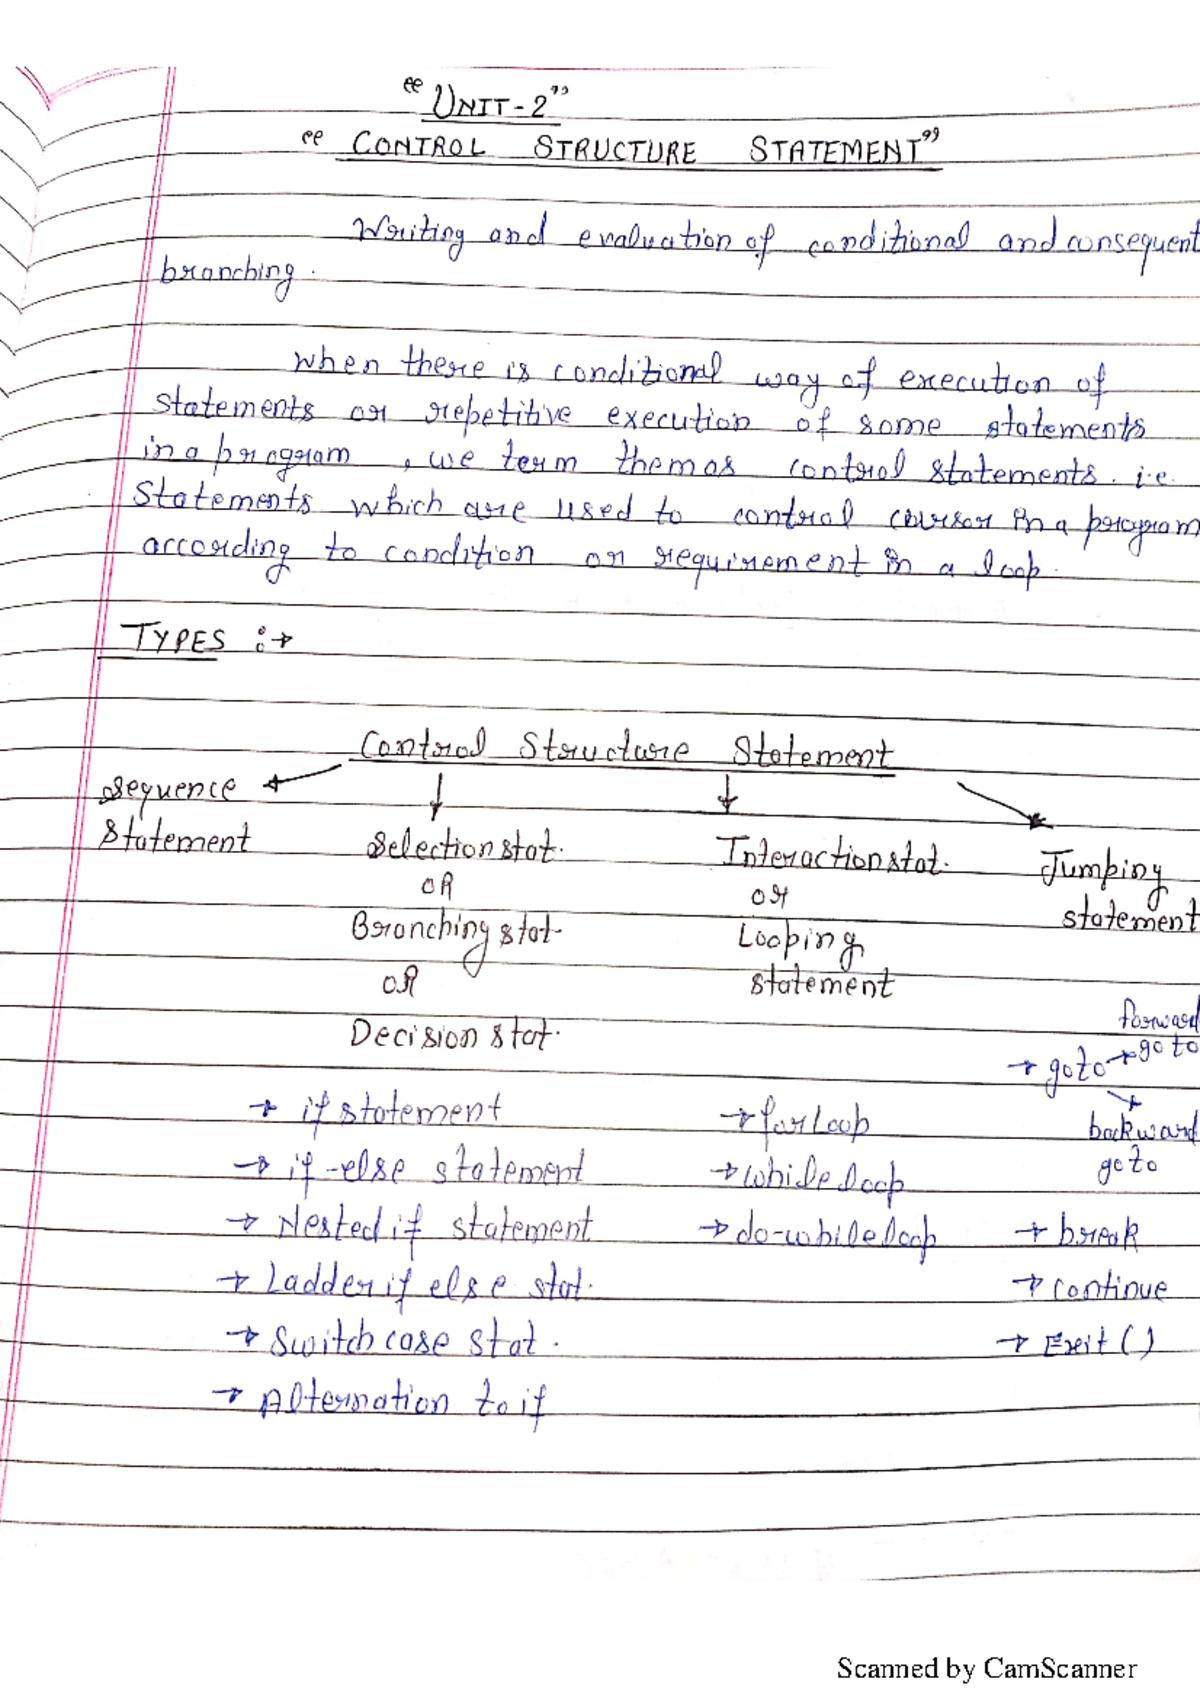 "UNIT-2"
"CONTROL STRUCTURE STATEMENT"
Writing and evaluation of conditional and consequent
branching.
When there is conditional way of execution of
statements or repetitive execution of some statements
in a program , we term them as control statements. i.e.
Statements which are used to control cursor in a program
according to condition or requirement in a loop.
TYPES :→
Control Structure Statement
Sequence
Statement
Selection stat.
OR
Branching stat.
OR
Decision stat.
→ if statement
→ if-else statement
→ Nested if statement
→ Ladder if else stat.
→ Switch case stat.
→ Alternation to if
Interaction stat.
or
Looping
statement
→ for Loop
→ While loop
→ do-while loop
Jumping
statement
forward
→ goto → go to
backward
go to
→ break
→ continue
→ Exit ( )
Scanned by CamScanner